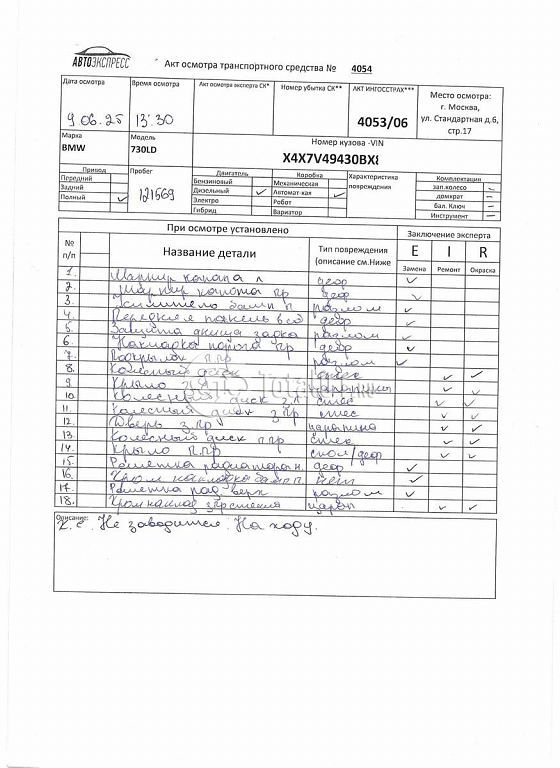 АВТОЭКСПРЕСС
Акт осмотра транспортного средства № 4054
Дата осмотра Время осмотра Акт осмотра эксперта СК* Номер убытка СК** АКТ ИНГОССТРАХ*** Место осмотра:
г. Москва,
ул. Стандартная д.6,
стр.17
9 06.25 13:30 4053/06
Марка Модель Номер кузова -VIN
BMW 730LD X4X7V49430BX
Привод Пробег Двигатель Коробка Характеристика повреждения Комплектация
Передний Бензиновый Механическая зап.колесо –
Задний 121569 Дизельный ✓ Автомат-кая ✓ домкрат –
Полный ✓ Электро Робот бал. Ключ –
Гибрид Вариатор Инструмент –
При осмотре установлено Заключение эксперта
№ п/п Название детали Тип повреждения (описание см.Ниже E I R
Замена Ремонт Окраска
1. Шарнир капота л деф ✓
2. Шарнир капота пр деф ✓
3. Усилитель бамп п разлом ✓
4. Передняя панель в сб деф ✓
5. Защита днища задка разлом ✓
6. Накладка порога пр деф ✓
7. Подкрылок п.пр разлом ✓
8. Колесный диск ✓ ✓
9. Крыло царапины ✓ ✓
10. Колесный диск з.л стес ✓ ✓
11. Колесный диск з.пр стес ✓ ✓
12. Дверь з.пр царапина ✓ ✓
13. Колесный диск п.пр стес ✓ ✓
14. Крыло п.пр скол/деф ✓ ✓
15. Решетка радиатора н. деф ✓
16. Хром накладка бамп п нет ✓
17. Решетка рад верх разлом ✓
18. Хром наклад царап ✓ ✓
Описание:
Х.Е. Не заводится. На ходу.